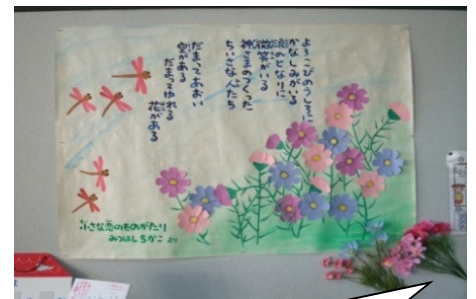 よろこびのうしろに
かなしみがいる
涙のとなりに
微笑がいる
神さまのつくった
ちいさな人たち
だまってあおい
空がある
だまってゆれる
花がある
小さな恋のものがたり
みつはしちかこ より